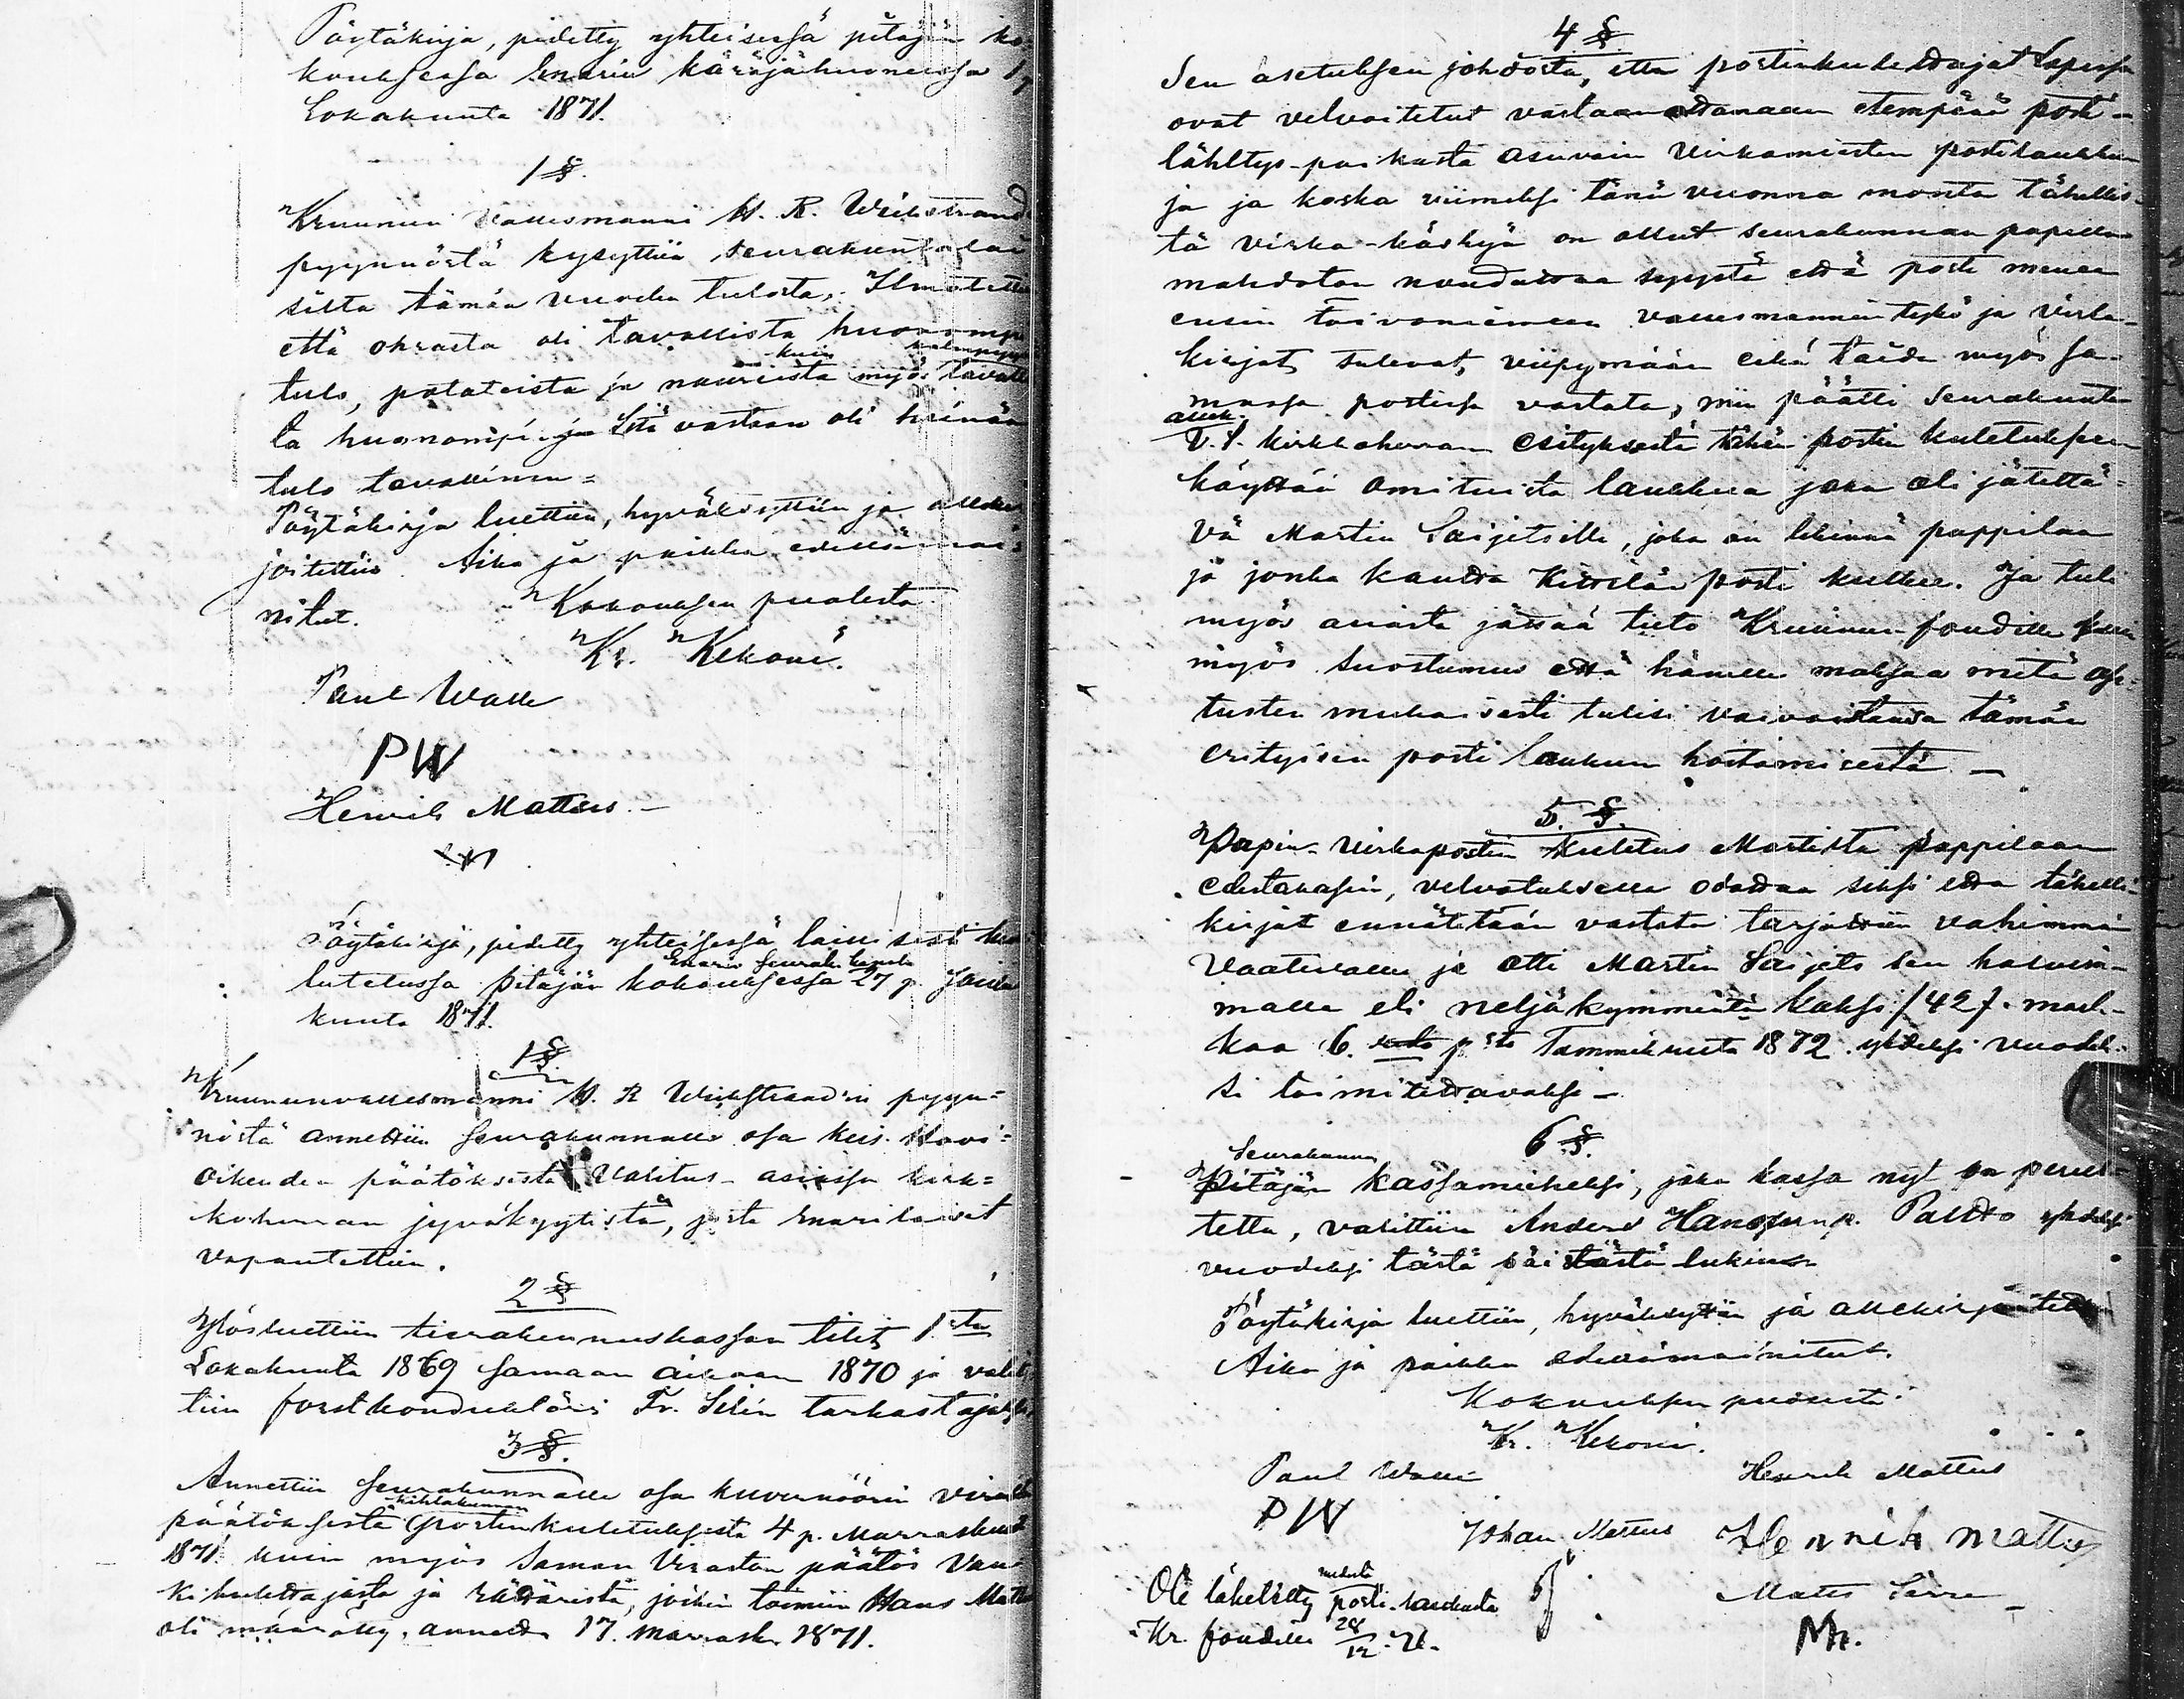 Pöytäkirja, pidetty yhteisessä pitäjän ko-
kouksessa Enarin käräjähuoneessa 1
Lokakuuta 1871.
1 §.
Kruunun vallesmanni H. R. Wickstrand
pyynnöstä kysyttiin seurakuntalai
silta tämän vuoden tulosta. Ilmotettu
että ohrasta oli tavallista huonompi
kuin
tulo, potateista ja nauriista myös tavalli
ta huonompi ja Sitä vastaan oli heinän
tulo tavallinen =
Pöytäkirja luettiin, hyväksyttiin ja allekir
joitettiin. Aika ja paikka edellämai-
nitut. Kokouksen puolesta
Kr. Kekoni.
Paul Walle
PW
Henrik Mattus.–
Pöytäkirja, pidetty yhteisessä laillisesti kuu
Enarin seurak.
lutetussa pitäjän kokouksessa 27 p. Joulu
kuuta 1871.
1 §.
Kruununvallesmanni H. R Wickstrandin pyyn=
nöstä annettiin seurakunnalle osa Keis. Hovi=
oikeuden päätöksestä Valitus-asiassa kirk=
koherran jyväkyytistä, josta Enarilaiset
vapautettiin.
2 §
Ylösluettiin tierakennuskassan tilit 1sta
Lokakuuta 1869 samaan aikaan 1870 ja valit
tiin forstkonduktöri Fr. Selin tarkastajaksi
3 §.
Annettiin seurakunnalle osa kuvernöörin viras
kihlakunnan
päätöksestä postinkuletuksesta 4 p. Marraskuut
1871 kuin myös saman Viraston päätös Van-
kikulettajasta ja Rättäristä, joihin toimiin Hans Matt
oli määrätty, annettu 17. marrask. 1871.
4 §
Sen asetuksen johdosta, että postinkulettajat Lapissa
ovat velvoitetut vastaanottamaan etempänä posti-
lähetys-paikasta asuvain Virkamiesten postilaukku-
ja ja koska viimeksi tänä vuonna monta tähellis-
tä virka-käskyä on ollut seurakunnan papille
mahdoton noudattaa syystä että posti menee
ensin Toivoniemeen vallesmannin tykö ja virka-
kirjat tulevat, viipymään eikä taida myös sa-
massa postissa vastata, niin päätti Seurakunta
allek.
V. t. kirkkoherran esityksestä tähän postin kuletukseen
käyttää omituista laukkua joka oli jätettä-
vä Martin Saijetsille, joka on likinnä pappilaa
ja jonka kautta Kittilän posti kulkee. Ja tuli
myös asiasta jättää tieto Kruunun foudille kuin
myös suostumus että hänelle maksaa mitä ase-
tusten mukaisesti tulisi vaivastansa tämän
erityisen posti laukun hoitamisesta –
5. §.
Papin-Virkapostin kuletus Martista pappilaan
edestakasin, velvotuksella odottaa siksi että tähelli-
kirjat ennätetään vastata tarjottiin vahimmin
Vaativalle ja otti Martin Saijets sen halvim-
malle eli neljäkymmentä kaksi (42) mark-
kaa 6. p:stä Tammikuuta 1872 yhdeksi vuodek-
si toimitettavaksi –
6 §.
Seurakunnan
Pitäjän kassamieheksi, joka kassa nyt on perus-
tettu, valittiin Anders Hansson p. Paltto yhdeksi
vuodeksi tästä päivästä lukien
Pöytäkirja luettiin, hyväksyttiin ja allekirjoitettiin
Aika ja paikka edellämainitut.
Kokouksen puolesta
Kr. Kekoni.
Paul Walle Henrik Mattus
PW Johan Mattus Henrik mattus
Ote lähetetty posti-laukusta
Kr. foudille 28/12 71.
Matts Sarre